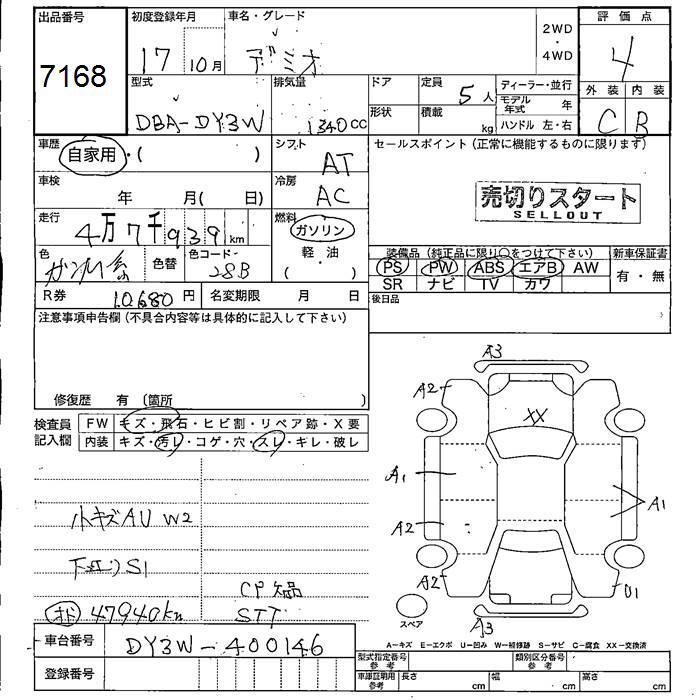 出品番号
7168
初度登録年月
17 10月
車名・グレード
デミオ
2WD
・
4WD
評価点
4
外装 内装
C B
型式
DBA-DY3W
排気量
1340cc
ドア
形状
定員
5人
積載
kg
ディーラー・並行
モデル年式 年
ハンドル 左・右
車歴
自家用・( )
シフト
AT
セールスポイント(正常に機能するものに限ります)
売切りスタート
SELLOUT
車検
年 月( 日)
冷房
AC
走行
4万7千939km
燃料
ガソリン
・
軽・油
( )
色
色替
色コード
28B
装備品(純正品に限り○をつけて下さい)
PS PW ABS エアB AW
SR ナビ TV カワ
新車保証書
有・無
R券 10,680円
名変期限 月 日
後日品
注意事項申告欄(不具合内容等は具体的に記入して下さい)
修復歴 有(箇所
検査員
記入欄
FW キズ・飛石・ヒビ割・リペア跡・X要
内装 キズ・汚レ・コゲ・穴・スレ・キレ・破レ
小キズAU W2
S1
CP欠品
47940km
STT
A3
A2
XX
A1
A1
A2
A2
U1
A3
スペア
A-キズ E-エクボ U-凹み W-補修跡 S-サビ C-腐食 XX-交換済
車台番号
DY3W-400146
登録番号
型式指定番号
参考
類別区分番号
参考
車庫証明用
参考
長さ cm
幅 cm
高さ cm